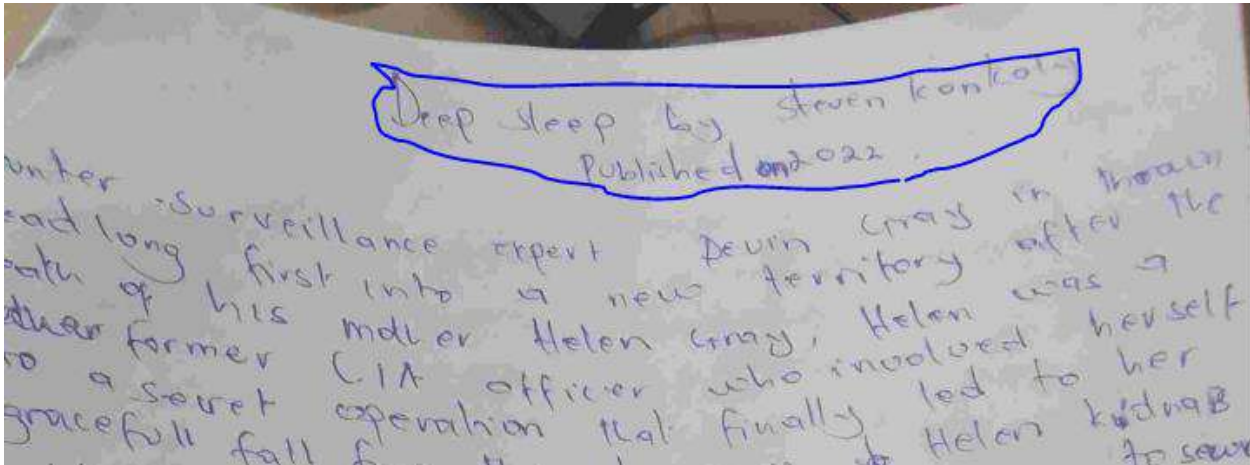 Deep sleep by steven konkoly
Published on 2022.
unter surveillance expert Devin Gray in
ead long first into a new territory after the
eath of his mother Helen Gray, Helen was a
former CIA officer who involved herself
to a secret operation that finally led to her
gracefull fall Helen kidnab